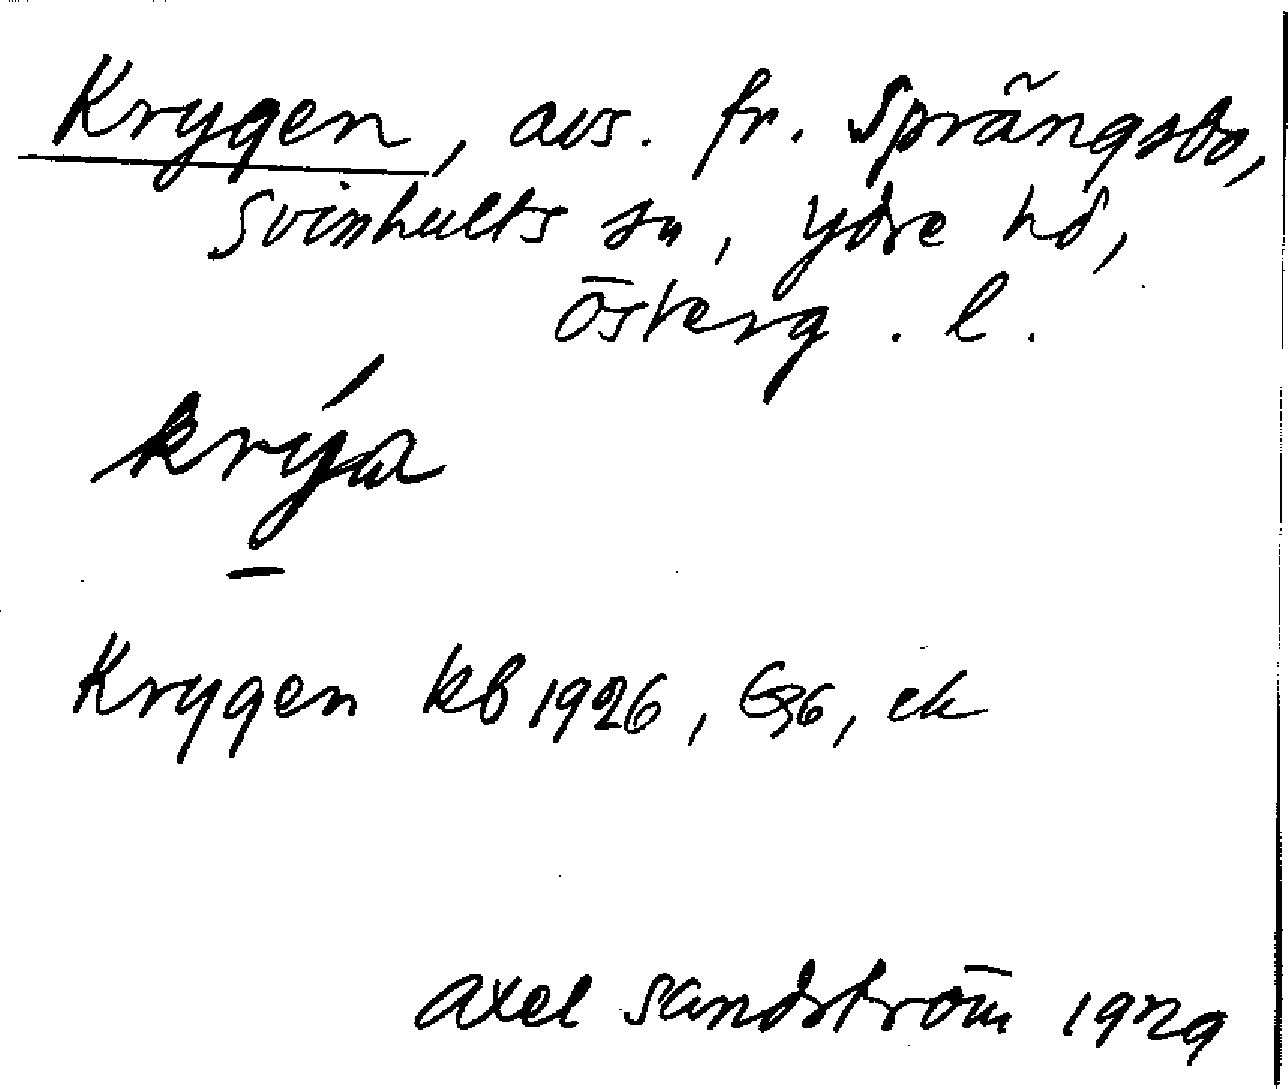 Krygen, avs. fr. Sprängsbo,
Svinhults sn, Ydre hd,
Österg. l.
krýa
Krygen kb 1926, ek
Axel Sandström 1929